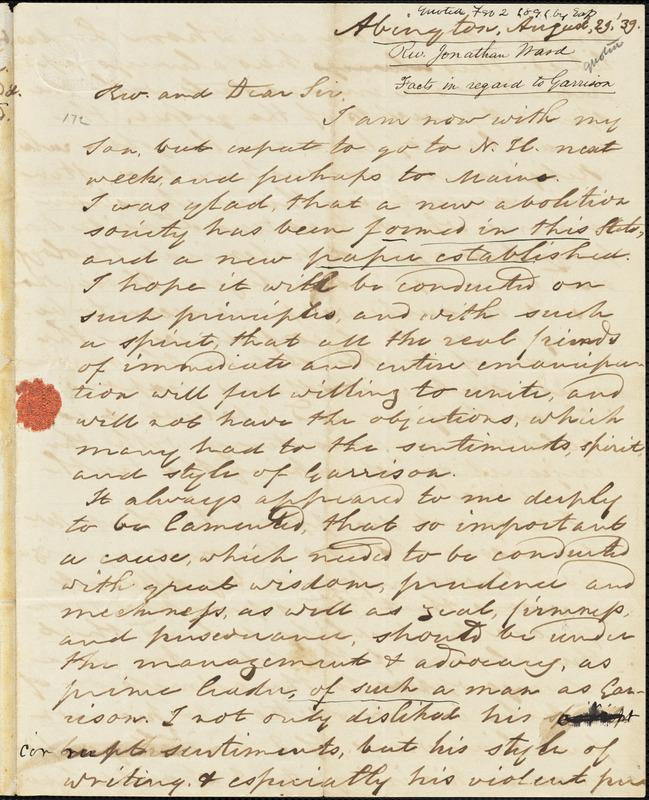 Quoted, Feb 2 1891 by
Abington, August, 29,'39.
Rev. Jonathan Ward
quoted
Facts in regard to Garrison
Rev. and Dear Sir
172
I am now with my
Son, but expect to go to N. H. next
week, and perhaps to Maine.
I was glad, that a new abolition
society has been formed in this State,
and a new paper established.
I hope it will be conducted on
such principles, and with such
a spirit, that all the real friends
of immediate and entire emancipa-
tion will feel willing to unite, and
will not have the objections, which
many had to the sentiments, spirit,
and style of Garrison.
It always appeared to me deeply
to be lamented, that so important
a cause, which needed to be conducted
with great wisdom, prudence and
meekness, as well as zeal, firmness,
and perseverance, should be under
the management & advocacy, as
prime leader, of such a man as Gar-
rison. I not only disliked his
cor rupt sentiments, but his style of
writing, & especially his violent